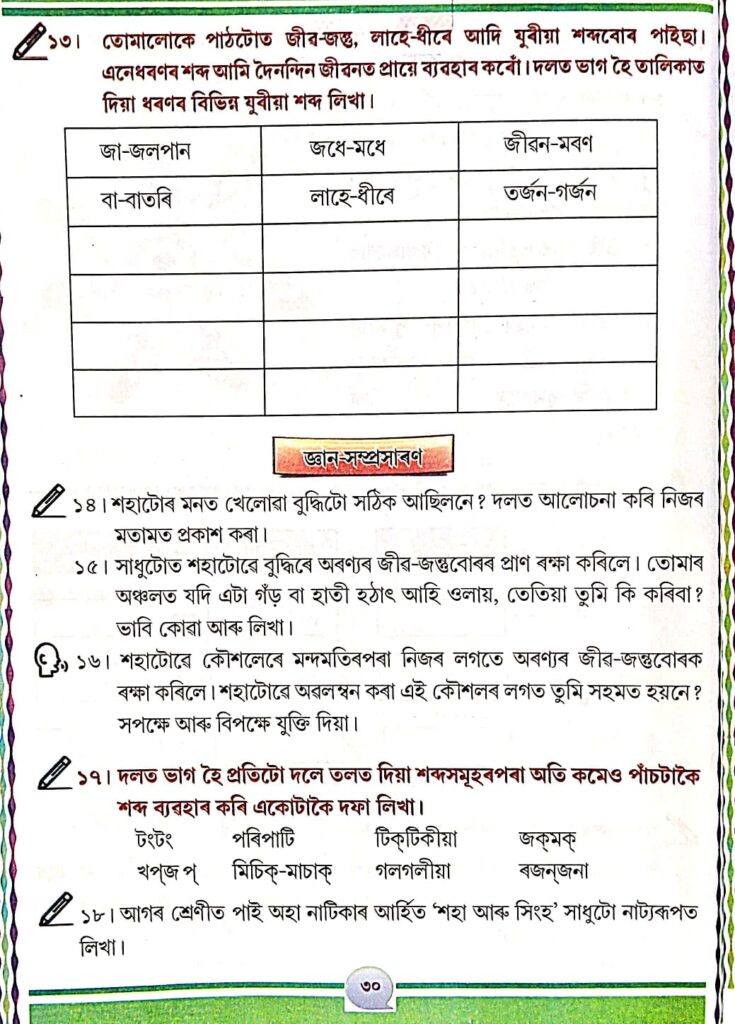 ১৩। তোমালোকে পাঠটোত জীৱ-জন্তু, লাহে-ধীৰে আদি যুৰীয়া শব্দবোৰ পাইছা।
এনেধৰণৰ শব্দ আমি দৈনন্দিন জীৱনত প্ৰায়ে ব্যৱহাৰ কৰোঁ। দলত ভাগ হৈ তালিকাত
দিয়া ধৰণৰ বিভিন্ন যুৰীয়া শব্দ লিখা।
জা-জলপান জধে-মধে জীৱন-মৰণ
বা-বাতৰি লাহে-ধীৰে তৰ্জন-গৰ্জন
জ্ঞান-সম্প্ৰসাৰণ
১৪। শহাটোৰ মনত খেলোৱা বুদ্ধিটো সঠিক আছিলনে? দলত আলোচনা কৰি নিজৰ
মতামত প্ৰকাশ কৰা।
১৫। সাধুটোত শহাটোৱে বুদ্ধিৰে অৰণ্যৰ জীৱ-জন্তুবোৰৰ প্ৰাণ ৰক্ষা কৰিলে। তোমাৰ
অঞ্চলত যদি এটা গঁড় বা হাতী হঠাৎ আহি ওলায়, তেতিয়া তুমি কি কৰিবা?
ভাবি কোৱা আৰু লিখা।
১৬। শহাটোৱে কৌশলেৰে মন্দমতিৰপৰা নিজৰ লগতে অৰণ্যৰ জীৱ-জন্তুবোৰক
ৰক্ষা কৰিলে। শহাটোৱে অৱলম্বন কৰা এই কৌশলৰ লগত তুমি সহমত হয়নে?
সপক্ষে আৰু বিপক্ষে যুক্তি দিয়া।
১৭। দলত ভাগ হৈ প্ৰতিটো দলে তলত দিয়া শব্দসমূহৰপৰা অতি কমেও পাঁচটাকৈ
শব্দ ব্যৱহাৰ কৰি একোটাকৈ দফা লিখা।
টংটং পৰিপাটি টিক্‌টিকীয়া জক্‌মক্
খপ্‌জপ্ মিচিক্-মাচাক্ গলগলীয়া ৰজন্‌জনা
১৮। আগৰ শ্ৰেণীত পাই অহা নাটিকাৰ আৰ্হিত ‘শহা আৰু সিংহ’ সাধুটো নাট্যৰূপত
লিখা।
৩০